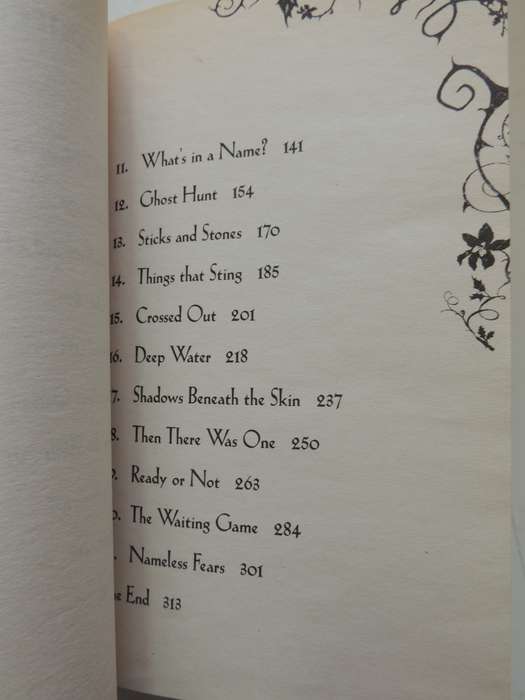 11. What's in a Name? 141
12. Ghost Hunt 154
13. Sticks and Stones 170
14. Things that Sting 185
15. Crossed Out 201
16. Deep Water 218
7. Shadows Beneath the Skin 237
8. Then There Was One 250
9. Ready or Not 263
0. The Waiting Game 284
. Nameless Fears 301
e End 313